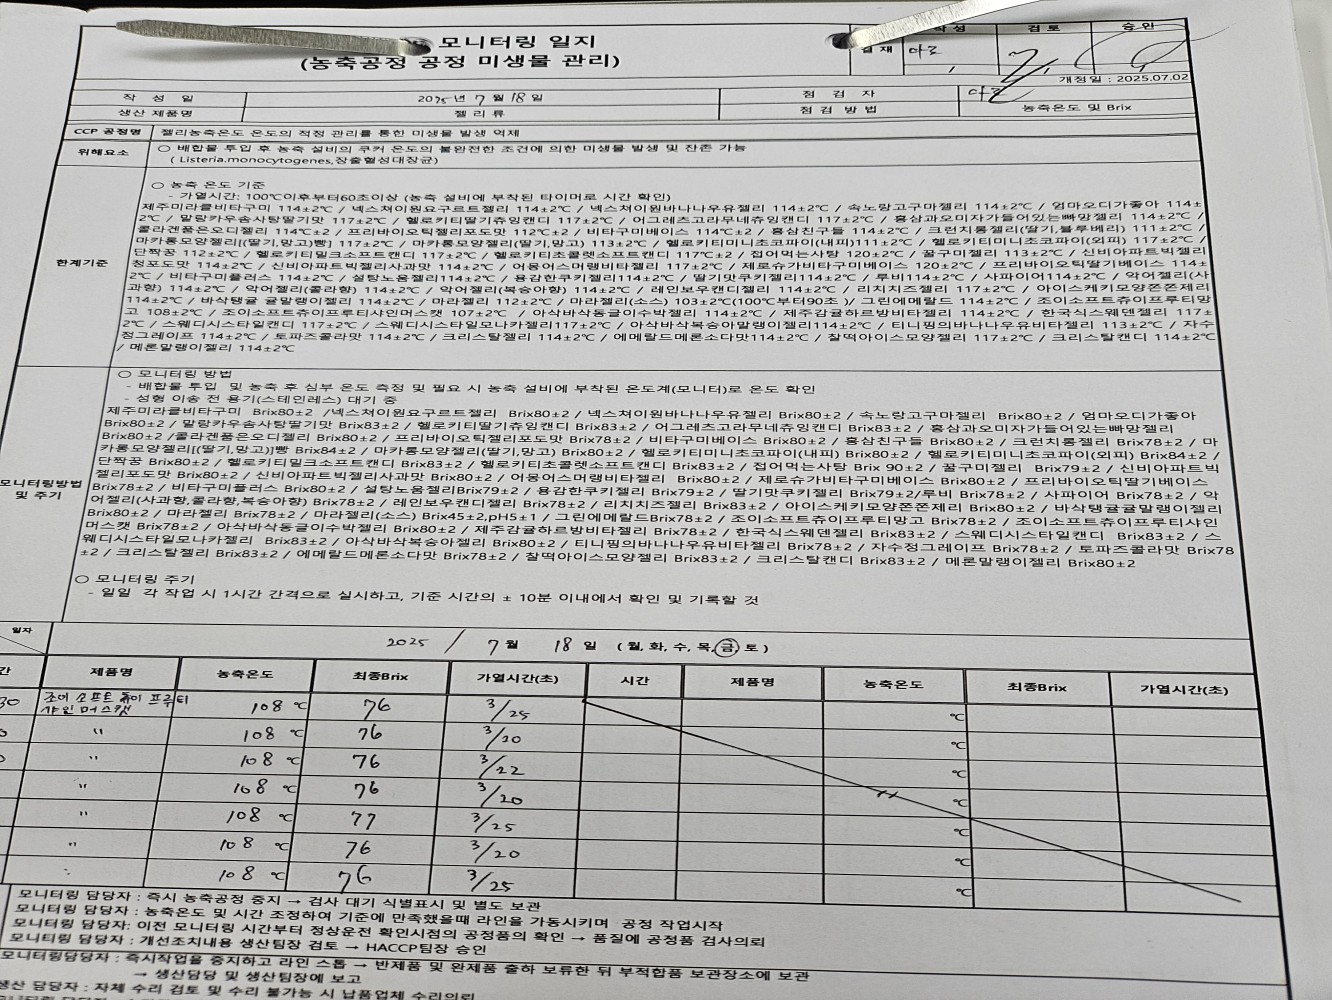 모니터링 일지
(농축공정 공정 미생물 관리)
결재 작성 검토 승인
개정일 : 2025.07.02
작 성 일 2025년 7월 18일 점 검 자
생산 제품명 젤리류 점검방법 농축온도 및 Brix
CCP 공정명 젤리농축온도 온도의 적정 관리를 통한 미생물 발생 억제
위해요소 ○ 배합물 투입 후 농축 설비의 쿠커 온도의 불완전한 조건에 의한 미생물 발생 및 잔존 가능
( Listeria.monocytogenes,장출혈성대장균)
한계기준
○ 농축 온도 기준
- 가열시간: 100℃이후부터60초이상 (농축 설비에 부착된 타이머로 시간 확인)
제주미라클비타구미 114±2℃ / 넥스쳐이원요구르트젤리 114±2℃ / 넥스쳐이원바나나우유젤리 114±2℃ / 속노랑고구마젤리 114±2℃ / 엄마오디가좋아 114±
2℃ / 말랑카우솜사탕딸기맛 117±2℃ / 헬로키티딸기츄잉캔디 117±2℃ / 어그레츠고라무네츄잉캔디 117±2℃ / 홍삼과오미자가들어있는빠망젤리 114±2℃ /
콜라겐품은오디젤리 114±2℃ / 프리바이오틱젤리포도맛 112℃±2℃ / 비타구미베이스 114℃±2℃ / 홍삼친구들 114±2℃ / 크런치롱젤리(딸기,블루베리) 111±2℃ /
마카롱모양젤리[(딸기,망고)빵] 117±2℃ / 마카롱모양젤리(딸기,망고) 113±2℃ / 헬로키티미니초코파이(내피)111±2℃ / 헬로키티미니초코파이(외피) 117±2℃ /
단짝꿍 112±2℃ / 헬로키티밀크소프트캔디 117±2℃ / 헬로키티초콜렛소프트캔디 117℃±2 / 접어먹는사탕 120±2℃ / 꿀구미젤리 113±2℃ / 신비아파트빅젤리
청포도맛 114±2℃ / 신비아파트빅젤리사과맛 114±2℃ / 어몽어스머랭비타젤리 117±2℃ / 제로슈가비타구미베이스 120±2℃ / 프리바이오틱딸기베이스 114±
2℃ / 비타구미플러스 114±2℃ / 설탕노움젤리114±2℃ / 용감한쿠키젤리114±2℃ / 딸기맛쿠키젤리114±2℃ / 루비114±2℃ / 사파이어114±2℃ / 악어젤리(사
과향) 114±2℃ / 악어젤리(콜라향) 114±2℃ / 악어젤리(복숭아향) 114±2℃ / 레인보우캔디젤리 114±2℃ / 리치치즈젤리 117±2℃ / 아이스케키모양쫀쫀제리
114±2℃ / 바삭탱귤 귤말랭이젤리 114±2℃ / 마라젤리 112±2℃ / 마라젤리(소스) 103±2℃(100℃부터90초 )/ 그린에메랄드 114±2℃ / 조이소프트츄이프루티망
고 108±2℃ / 조이소프트츄이프루티샤인머스캣 107±2℃ / 아삭바삭동글이수박젤리 114±2℃ / 제주감귤하르방비타젤리 114±2℃ / 한국식스웨덴젤리 117±
2℃ / 스웨디시스타일캔디 117±2℃ / 스웨디시스타일모나카젤리117±2℃ / 아삭바삭복숭아말랭이젤리114±2℃ / 티니핑의바나나우유비타젤리 113±2℃ / 자수
정그레이프 114±2℃ / 토파즈콜라맛 114±2℃ / 크리스탈젤리 114±2℃ / 에메랄드메론소다맛114±2℃ / 찰떡아이스모양젤리 117±2℃ / 크리스탈캔디 114±2℃
/ 메론말랭이젤리 114±2℃
모니터링방법 및 주기
○ 모니터링 방법
- 배합물 투입 및 농축 후 심부 온도 측정 및 필요 시 농축 설비에 부착된 온도계(모니터)로 온도 확인
- 성형 이송 전 용기(스테인레스) 대기 중
제주미라클비타구미 Brix80±2 /넥스쳐이원요구르트젤리 Brix80±2 / 넥스쳐이원바나나우유젤리 Brix80±2 / 속노랑고구마젤리 Brix80±2 / 엄마오디가좋아
Brix80±2 / 말랑카우솜사탕딸기맛 Brix83±2 / 헬로키티딸기츄잉캔디 Brix83±2 / 어그레츠고라무네츄잉캔디 Brix83±2 / 홍삼과오미자가들어있는빠망젤리
Brix80±2 /콜라겐품은오디젤리 Brix80±2 / 프리바이오틱젤리포도맛 Brix78±2 / 비타구미베이스 Brix80±2 / 홍삼친구들 Brix80±2 / 크런치롱젤리 Brix78±2 / 마
카롱모양젤리[(딸기,망고)]빵 Brix84±2 / 마카롱모양젤리(딸기,망고) Brix80±2 / 헬로키티미니초코파이(내피) Brix80±2 / 헬로키티미니초코파이(외피) Brix84±2 /
단짝꿍 Brix80±2 / 헬로키티밀크소프트캔디 Brix83±2 / 헬로키티초콜렛소프트캔디 Brix83±2 / 접어먹는사탕 Brix 90±2 / 꿀구미젤리 Brix79±2 / 신비아파트빅
젤리포도맛 Brix80±2 / 신비아파트빅젤리사과맛 Brix80±2 / 어몽어스머랭비타젤리 Brix80±2 / 제로슈가비타구미베이스 Brix80±2 / 프리바이오틱딸기베이스
Brix78±2 / 비타구미플러스 Brix80±2 / 설탕노움젤리Brix79±2 / 용감한쿠키젤리 Brix79±2 / 딸기맛쿠키젤리 Brix79±2/루비 Brix78±2 / 사파이어 Brix78±2 / 악
어젤리(사과향,콜라향,복숭아향) Brix78±2 / 레인보우캔디젤리 Brix78±2 / 리치치즈젤리 Brix83±2 / 아이스케키모양쫀쫀제리 Brix80±2 / 바삭탱귤귤말랭이젤리
Brix80±2 / 마라젤리 Brix78±2 / 마라젤리(소스) Brix45±2,pH5±1 / 그린에메랄드Brix78±2 / 조이소프트츄이프루티망고 Brix78±2 / 조이소프트츄이프루티샤인
머스캣 Brix78±2 / 아삭바삭동글이수박젤리 Brix80±2 / 제주감귤하르방비타젤리 Brix78±2 / 한국식스웨덴젤리 Brix83±2 / 스웨디시스타일캔디 Brix83±2 / 스
웨디시스타일모나카젤리 Brix83±2 / 아삭바삭복숭아젤리 Brix80±2 / 티니핑의바나나우유비타젤리 Brix78±2 / 자수정그레이프 Brix78±2 / 토파즈콜라맛 Brix78
±2 / 크리스탈젤리 Brix83±2 / 에메랄드메론소다맛 Brix78±2 / 찰떡아이스모양젤리 Brix83±2 / 크리스탈캔디 Brix83±2 / 메론말랭이젤리 Brix80±2
○ 모니터링 주기
- 일일 각 작업 시 1시간 간격으로 실시하고, 기준 시간의 ± 10분 이내에서 확인 및 기록할 것
일자 2025 / 7월 18일 (월,화,수,목,금,토)
간 제품명 농축온도 최종Brix 가열시간(초) 시간 제품명 농축온도 최종Brix 가열시간(초)
30 조이소프트츄이 프루티 샤인머스캣 108 ℃ 76 3/25 ℃
0 " 108 ℃ 76 3/20 ℃
0 " 108 ℃ 76 3/22 ℃
" 108 ℃ 76 3/20 ℃
" 108 ℃ 77 3/25 ℃
" 108 ℃ 76 3/20 ℃
" 108 ℃ 76 3/25 ℃
모니터링 담당자 : 즉시 농축공정 중지 → 검사 대기 식별표시 및 별도 보관
모니터링 담당자 : 농축온도 및 시간 조정하여 기준에 만족했을때 라인을 가동시키며 공정 작업시작
모니터링 담당자: 이전 모니터링 시간부터 정상운전 확인시점의 공정품의 확인 → 품질에 공정품 검사의뢰
모니터링 담당자 : 개선조치내용 생산팀장 검토 → HACCP팀장 승인
모니터링담당자 : 즉시작업을 중지하고 라인 스톱 → 반제품 및 완제품 출하 보류한 뒤 부적합품 보관장소에 보관
→ 생산담당 및 생산팀장에 보고
생산 담당자 : 자체 수리 검토 및 수리 불가능 시 납품업체 수리의뢰